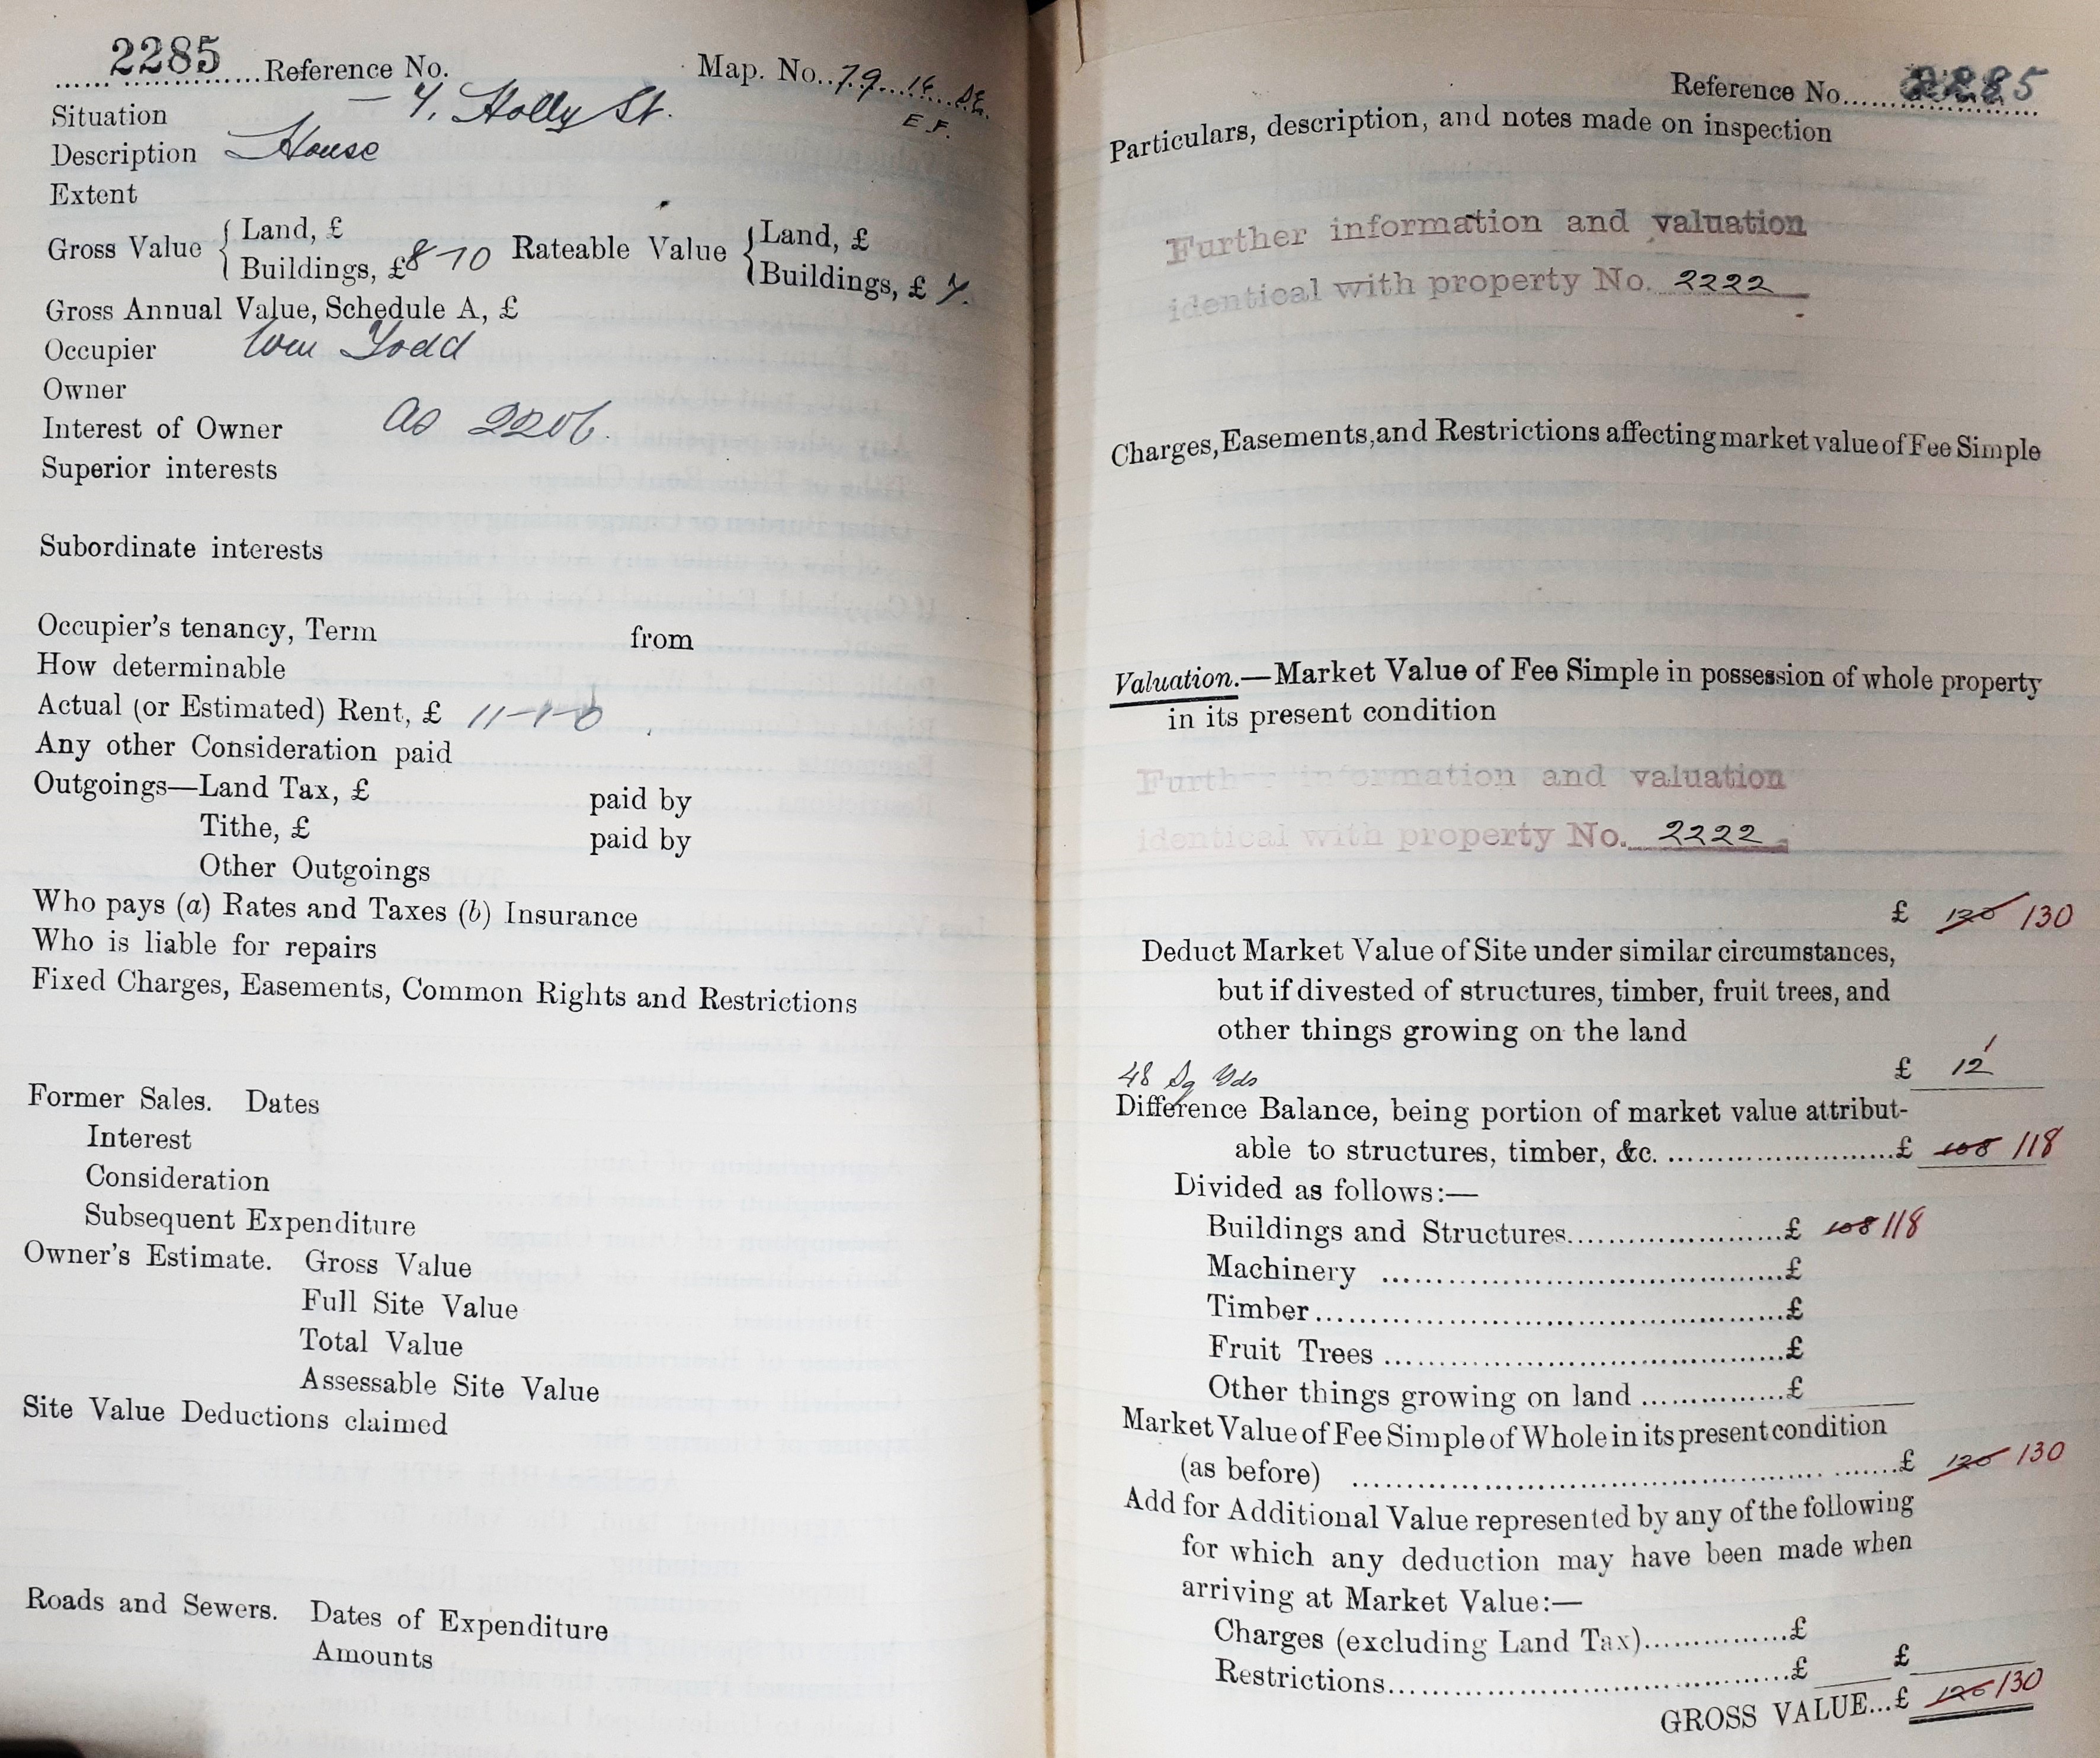 2285 Reference No. Map. No. 79.16. DE.
E F.
Situation 4, Holly St.
Description House
Extent
Gross Value { Land, £
Buildings, £ 8-10 Rateable Value { Land, £
Buildings, £ 7.
Gross Annual Value, Schedule A, £
Occupier Wm Todd
Owner
Interest of Owner as 2206.
Superior interests
Subordinate interests
Occupier's tenancy, Term from
How determinable
Actual (or Estimated) Rent, £ 11-1-0
Any other Consideration paid
Outgoings—Land Tax, £ paid by
Tithe, £ paid by
Other Outgoings
Who pays (a) Rates and Taxes (b) Insurance
Who is liable for repairs
Fixed Charges, Easements, Common Rights and Restrictions
Former Sales. Dates
Interest
Consideration
Subsequent Expenditure
Owner's Estimate. Gross Value
Full Site Value
Total Value
Assessable Site Value
Site Value Deductions claimed
Roads and Sewers. Dates of Expenditure
Amounts
Reference No. 2285
Particulars, description, and notes made on inspection
Further information and valuation
identical with property No. 2222
Charges, Easements, and Restrictions affecting market value of Fee Simple
Valuation.—Market Value of Fee Simple in possession of whole property
in its present condition
Further information and valuation
identical with property No. 2222
£ 120 130
Deduct Market Value of Site under similar circumstances,
but if divested of structures, timber, fruit trees, and
other things growing on the land
48 Sq Yds £ 12
Difference Balance, being portion of market value attribut-
able to structures, timber, &c. £ 108 118
Divided as follows:—
Buildings and Structures £ 108 118
Machinery £
Timber £
Fruit Trees £
Other things growing on land £
Market Value of Fee Simple of Whole in its present condition
(as before) £ 120 130
Add for Additional Value represented by any of the following
for which any deduction may have been made when
arriving at Market Value:—
Charges (excluding Land Tax) £
Restrictions £ £
GROSS VALUE...£ 120 130